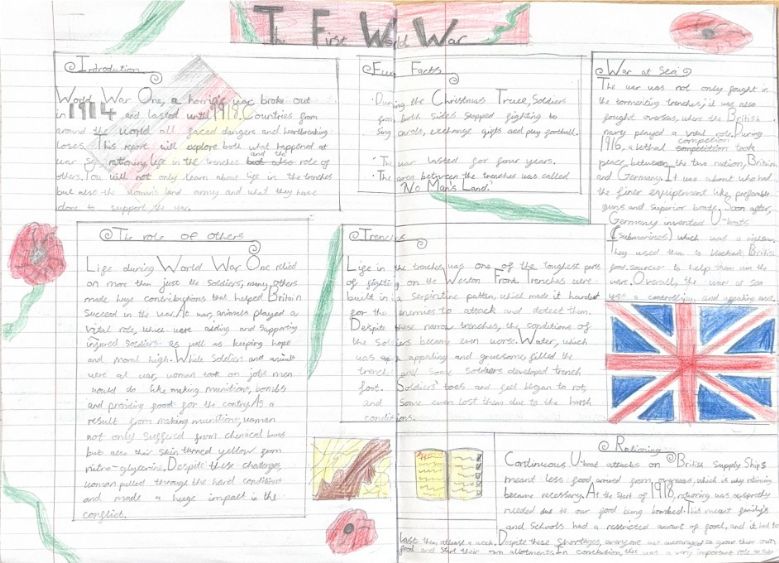 The First World War
Introduction
World War One, a horrific war broke out
in 1914 and lasted until 1918. Countries from
around the world all faced dangers and heartbreaking
loses. This page will explore both what happened at
war rationing, life in the trenches but also and the role of
others. You will not only learn about life in the trenches
but also the woman's land army and what they have
done to support the war.
Fun Facts
During the Christmas Truce, Soldiers
from both sides stopped fighting to
sing carols, exchange gifts and play football.
The war lasted for four years.
The area between the trenches was called
'No Man's Land.'
War at Sea
The war was not only fought in
the tormenting trenches, it was also
fought overseas, where the British
navy played a vital role. During
1916, a lethal competition took
peace, between the two nation, Britain
and Germany. It was about who had
the finer equiptment like preferable
guns and superior boats. Soon after,
Germany invented U-boats
(submarines) which was a nightmare.
They used them to blockade British
food sources to help them win the
war. Overall, the war at sea
was a
The role of others
Life during World War One relied
on more than just the soldiers, many others
made huge contributions that helped Britain
succeed in the war. At war, animals played a
vital role, which were aiding and supporting
injured soldiers as well as keeping hope
and moral high. While Soldiers and animals
were at war, woman took on jobs men
would do like making munitions, bombs
and providing food for the contry. As a
result from making munitions, woman
not only suffered from chemical burns
but also their skin turned yellow from
nitro-glycerine. Despite these challenges,
woman pulled through the hard conditions
and made a huge impact in the
conflict.
Trenches
Life in the trenches was one of the toughest parts
of fighting on the Western Front. Trenches were
built in a serpentine pattern, which made it harder
for the enemies to attack and detect them.
Despite these narrow trenches, the conditions of
the soldiers became even worse. Water, which
was appealing and gruesome, filled the
trench and some soldiers developed trench
foot. Soldiers' toes and feet began to rot,
and some even lost them due to the harsh
conditions.
Rationing
Continuous U-boat attacks on British Supply Ships
meant less food around from overseas, which is why rationing
became necessary. At the start of 1918, rationing was desperatly
needed due to our food being bombed. This meant family's
and Schools had a restricted amount of food, and it had to
last them atleast a week. Despite these shortages, everyone was encouraged to grow their own
food and start their own allotments. In conclusion, this was a very important role